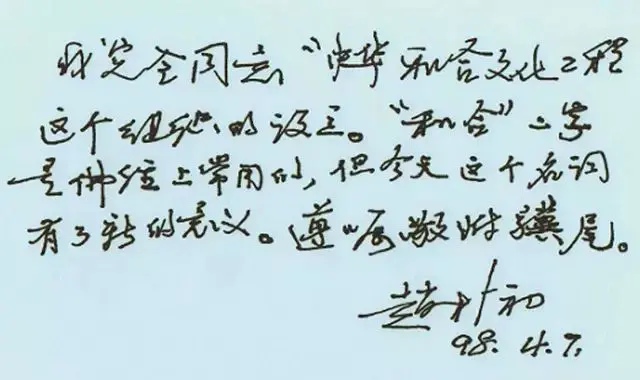 我完全同意“中华和合文化工程
这个组织”的设立。“和合”二字
是佛经上常用的，但今天这个名词
有了新的意义。遵嘱敬附骥尾。
赵朴初
98.4.7.